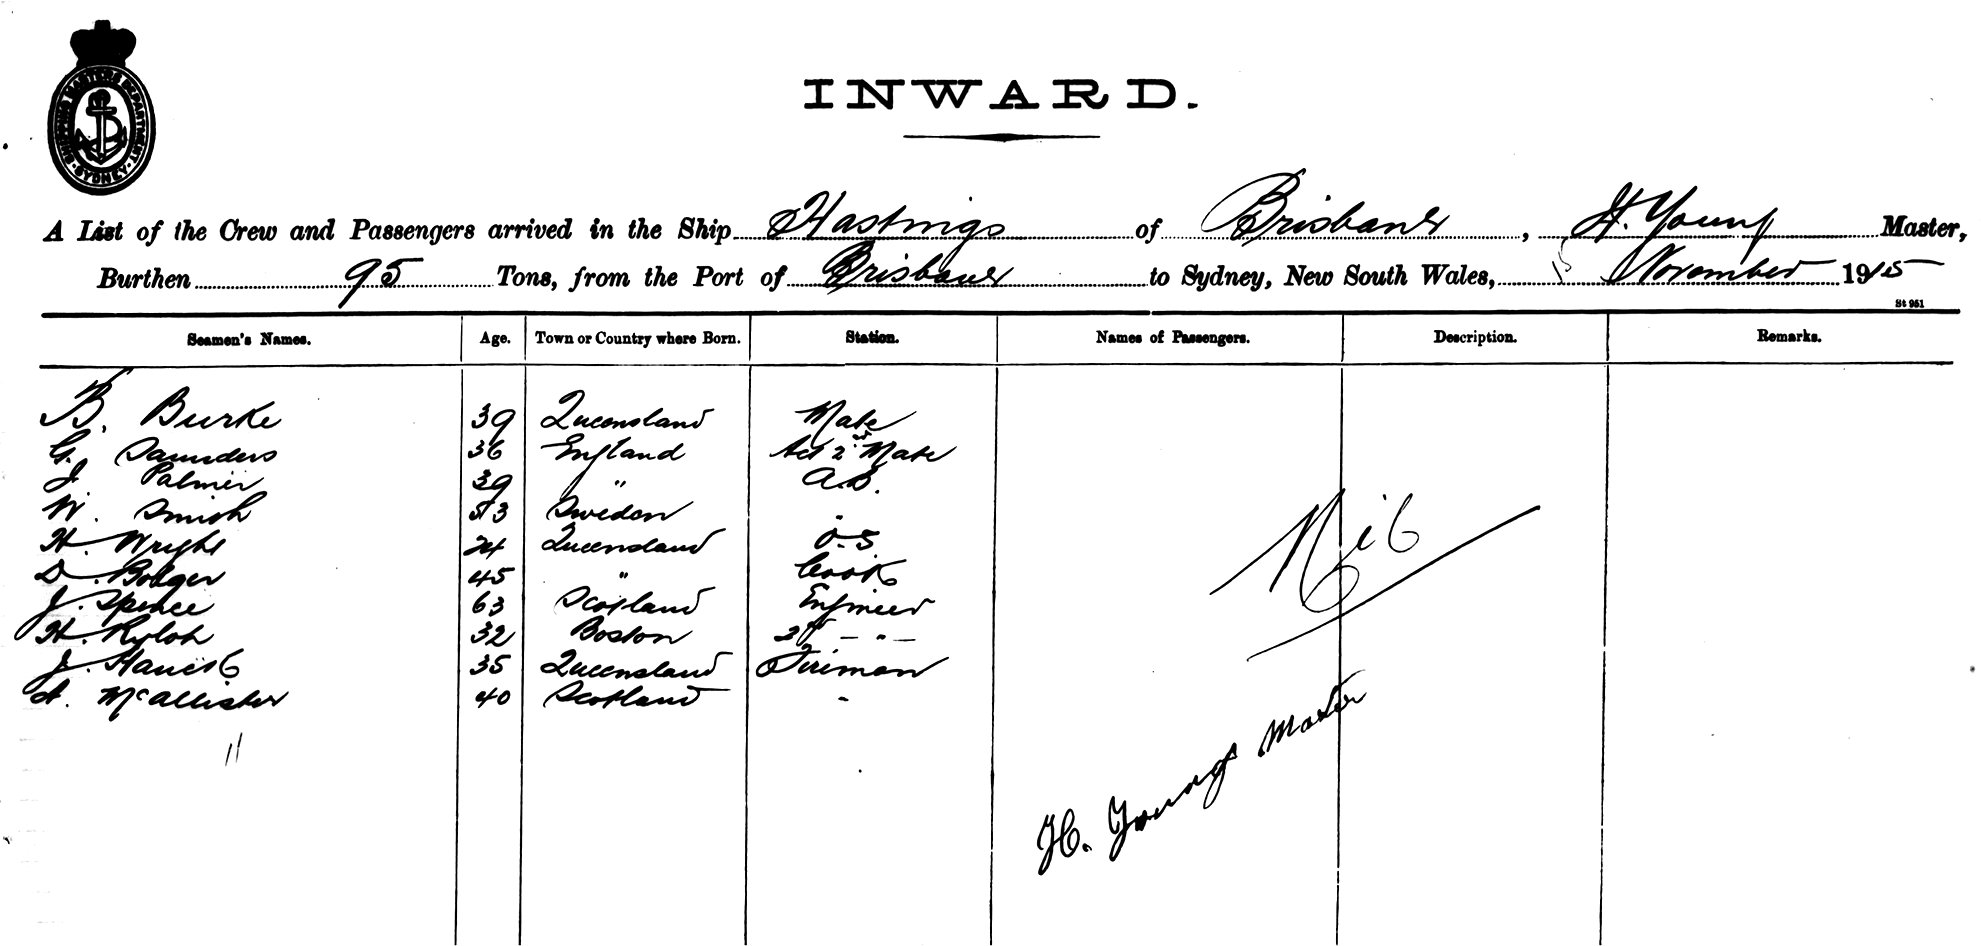 SHIPPING MASTERS DEPARTMENT · SYDNEY ·
INWARD.
A List of the Crew and Passengers arrived in the Ship Hastings of Brisbane, H. Young Master,
Burthen 95 Tons, from the Port of Brisbane to Sydney, New South Wales, 15 November 1915
St 951
Seamen's Names. Age. Town or Country where Born. Station. Names of Passengers. Description. Remarks.
B. Burke 39 Queensland Mate
G. Saunders 36 England Act 2nd Mate
J. Palmer 39 " A.B.
W. Smith 53 Sweden "
H. Wright 24 Queensland O.S
D. Bolger 45 " Cook
J. Spence 63 Scotland Engineer
H. 32 Boston 2nd — " —
J. 35 Queensland Fireman
A. McAllister 40 Scotland "
11
Nil
H. Young Master